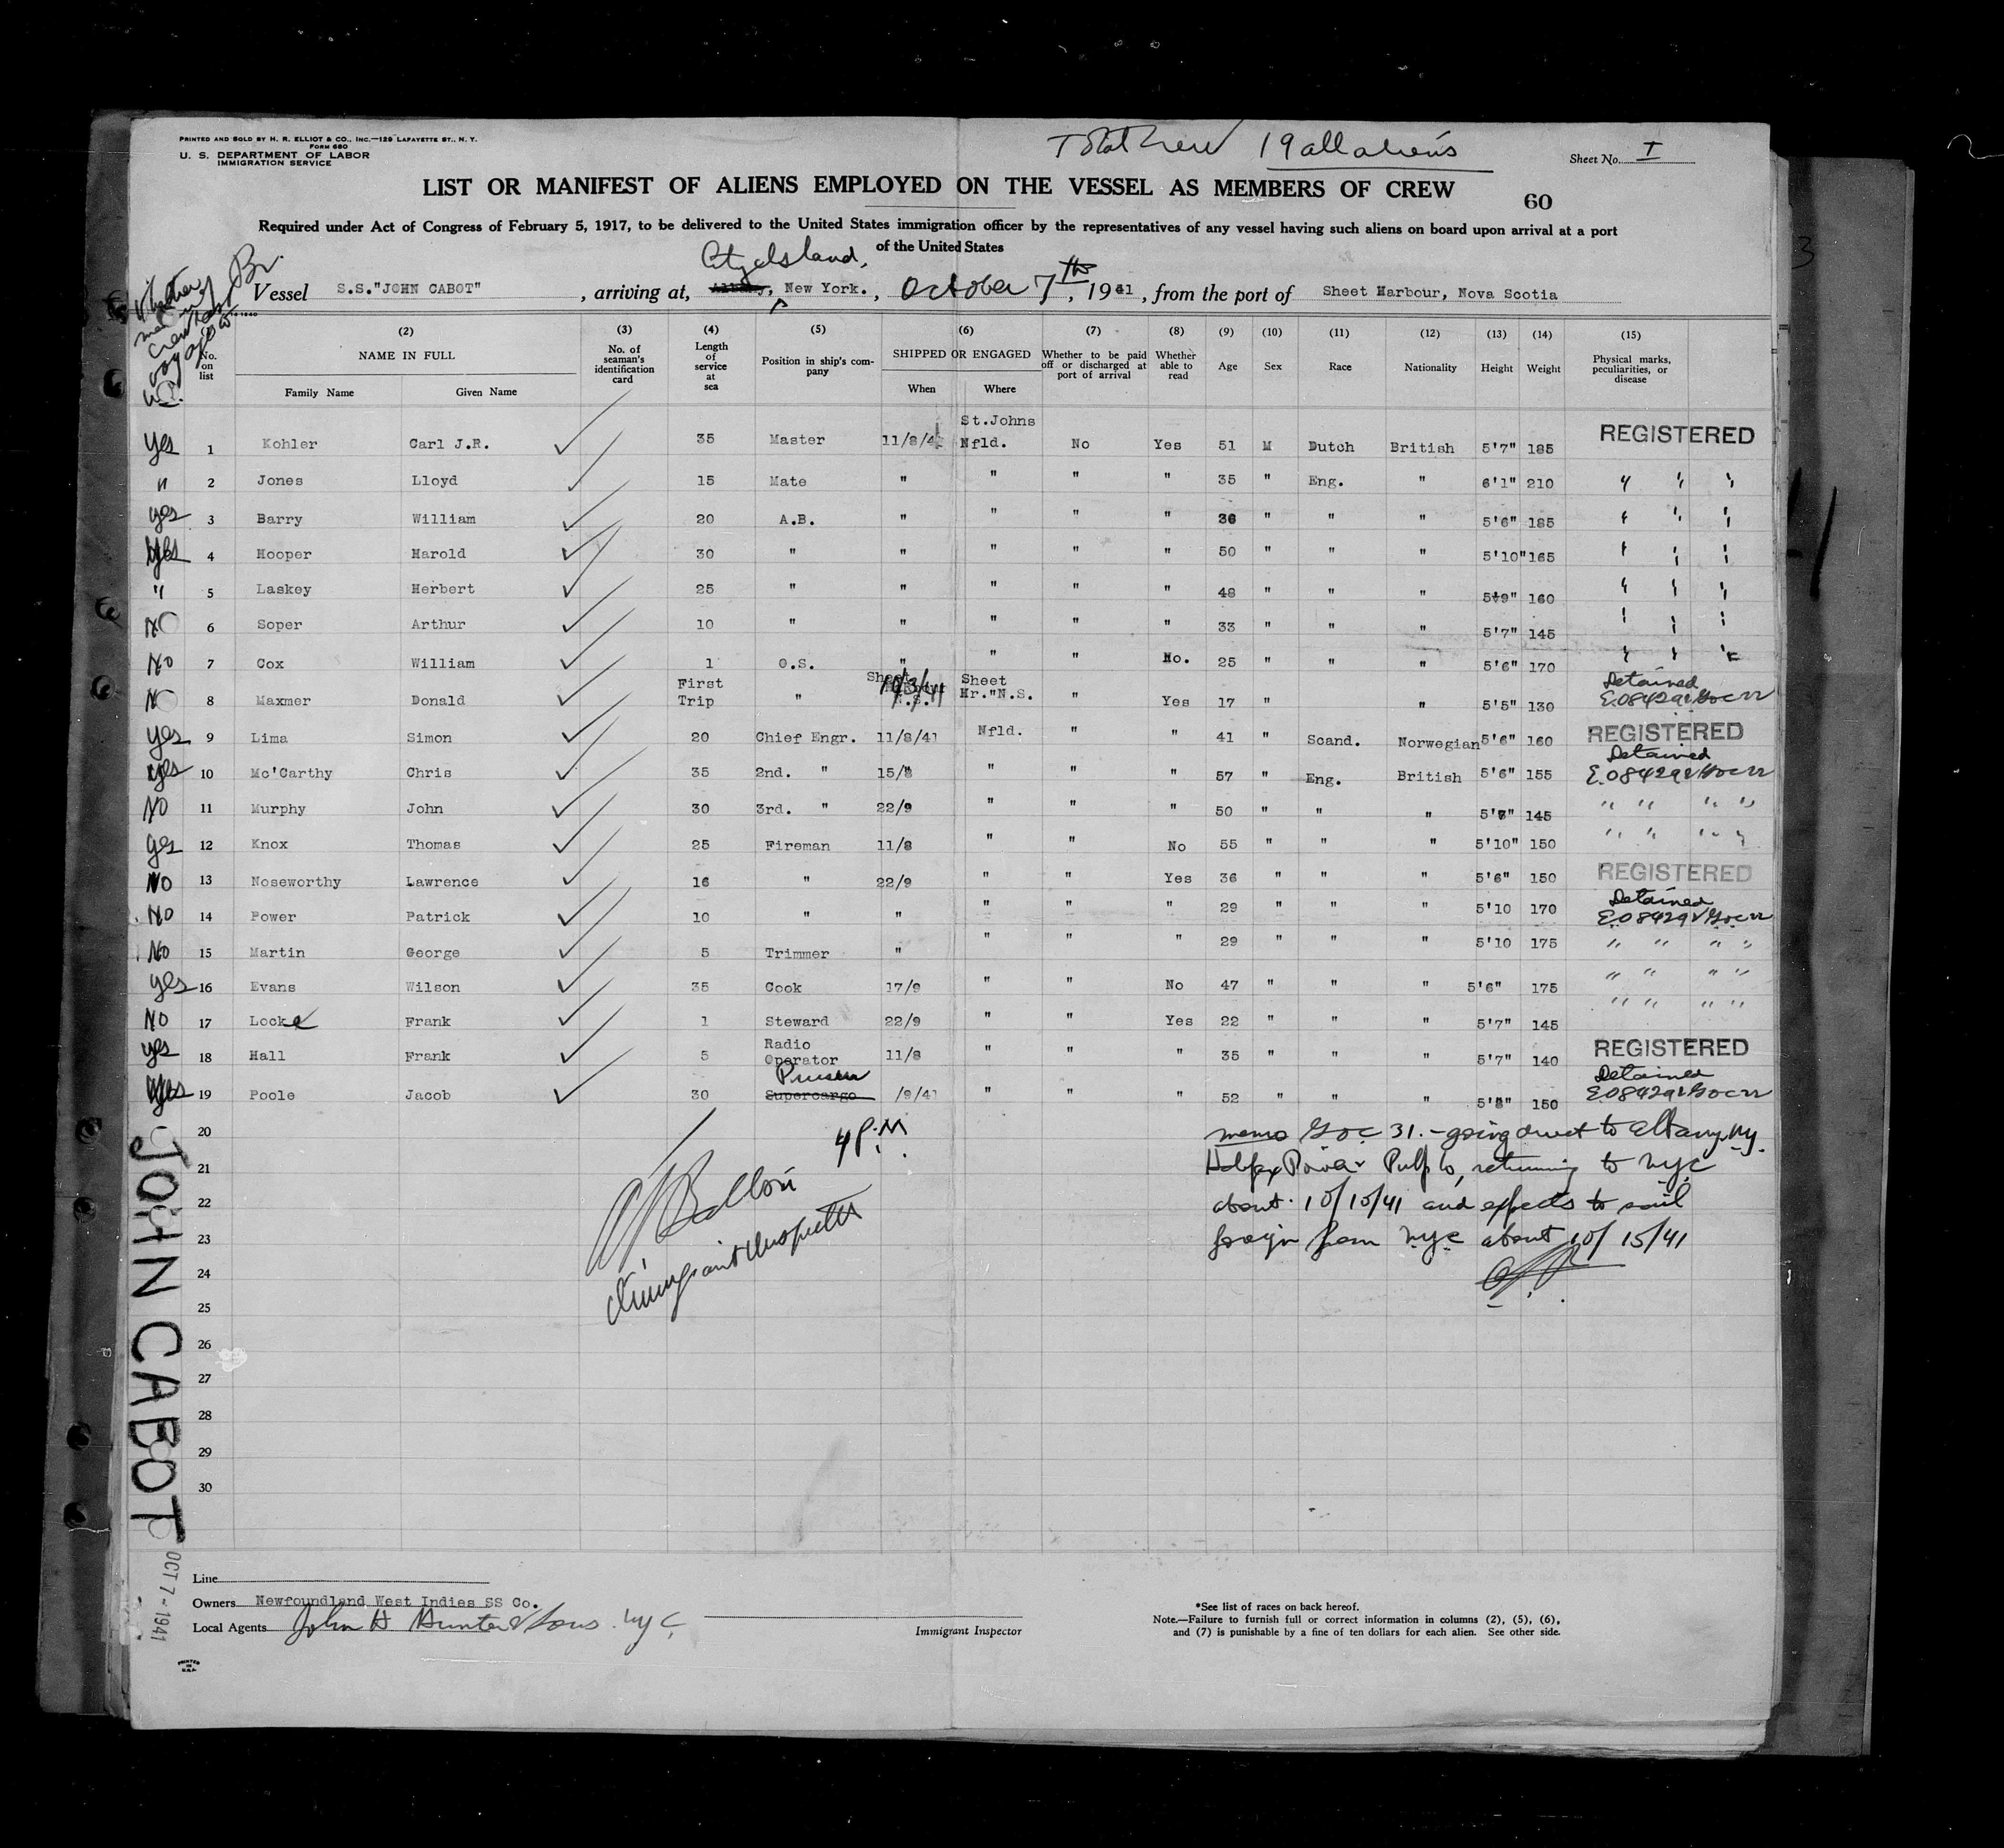 PRINTED AND SOLD BY H. R. ELLIOT & CO., INC.—129 LAFAYETTE ST., N. Y.
FORM 680
U. S. DEPARTMENT OF LABOR
IMMIGRATION SERVICE
Total crew 19 all aliens
Sheet No. I
LIST OR MANIFEST OF ALIENS EMPLOYED ON THE VESSEL AS MEMBERS OF CREW
60
Required under Act of Congress of February 5, 1917, to be delivered to the United States immigration officer by the representatives of any vessel having such aliens on board upon arrival at a port
of the United States
City Island,
Br.
Vessel S.S."JOHN CABOT", arriving at, Albany, New York., October 7th, 1941, from the port of Sheet Harbour, Nova Scotia
No. on list (2) NAME IN FULL Family Name Given Name (3) No. of seaman's identification card (4) Length of service at sea (5) Position in ship's company (6) SHIPPED OR ENGAGED When Where (7) Whether to be paid off or discharged at port of arrival (8) Whether able to read (9) Age (10) Sex (11) Race (12) Nationality (13) Height (14) Weight (15) Physical marks, peculiarities, or disease
yes 1 Kohler Carl J.R. 35 Master 11/8/41 St.Johns Nfld. No Yes 51 M Dutch British 5'7" 185 REGISTERED
" 2 Jones Lloyd 15 Mate " " " " 35 " Eng. " 6'1" 210 " " "
yes 3 Barry William 20 A.B. " " " " 36 " " " 5'6" 185 " " "
yes 4 Hooper Harold 30 " " " " " 50 " " " 5'10" 165 " " "
" 5 Laskey Herbert 25 " " " " " 48 " " " 5'9" 160 " " "
NO 6 Soper Arthur 10 " " " " " 33 " " " 5'7" 145 " " "
No 7 Cox William 1 O.S. " " " No. 25 " " " 5'6" 170 " " "
No 8 Maxmer Donald First Trip " 10/3/41 Sheet Hr."N.S. " Yes 17 " " 5'5" 130 Detained E.0.8429
yes 9 Lima Simon 20 Chief Engr. 11/8/41 Nfld. " " 41 " Scand. Norwegian 5'6" 160 REGISTERED
yes 10 Mc'Carthy Chris 35 2nd. " 15/8 " " " 57 " Eng. British 5'6" 155 Detained E.0.8429
NO 11 Murphy John 30 3rd. " 22/9 " " " 50 " " " 145 " " " "
yes 12 Knox Thomas 25 Fireman 11/8 " " No 55 " " " 5'10" 150 " " " "
NO 13 Noseworthy Lawrence 16 " 22/9 " " Yes 36 " " " 5'6" 150 REGISTERED
NO 14 Power Patrick 10 " " " " " 29 " " " 5'10 170 Detained E.0.8429
NO 15 Martin George 5 Trimmer " " " " 29 " " " 5'10 175 " " " "
yes 16 Evans Wilson 35 Cook 17/9 " " No 47 " " " 5'6" 175 " " " "
NO 17 Locke Frank 1 Steward 22/9 " " Yes 22 " " " 5'7" 145 " " " "
yes 18 Hall Frank 5 Radio Operator 11/8 " " " 35 " " " 5'7" 140 REGISTERED
yes 19 Poole Jacob 30 Supercargo Purser /9/41 " " " 52 " " " 5'8" 150 Detained E.0.8429
20
4 P.M.
memo — going direct to Albany, N.y.
21
Power Pulp Co, returning to nyc
22
about 10/10/41 and expects to sail
23
foreign from nyc about 10/15/41
Immigrant Inspector
24
25
26
27
28
29
30
JOHN CABOT
OCT 7 - 1941
Line
Owners Newfoundland West Indies SS Co.
Local Agents John H Hunter & Sons. nyc.
Immigrant Inspector
*See list of races on back hereof.
Note.—Failure to furnish full or correct information in columns (2), (5), (6),
and (7) is punishable by a fine of ten dollars for each alien. See other side.
PRINTED IN U.S.A.